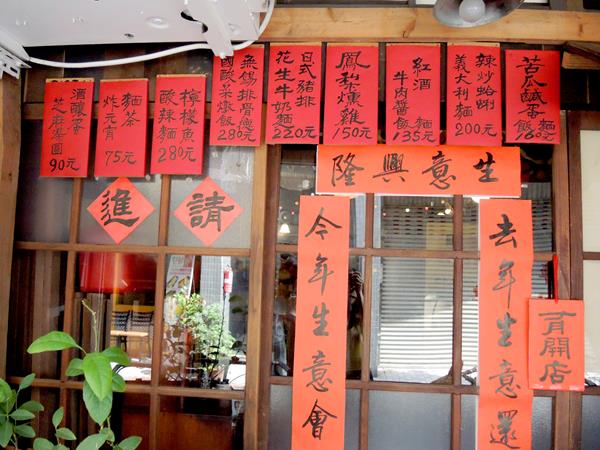 苦瓜鹹蛋
麵飯160元
辣炒蛤蜊
義大利麵
200元
紅酒
牛肉醬飯麵
135元
鳳梨燻雞
150元
日式豬排
花生牛奶麵
220元
無錫排骨德
國酸菜燉飯
280元
檸檬魚
酸辣麵
280元
麵茶
炸元宵
75元
酒釀
芝麻湯圓
90元
請進
生意興隆
去年生意還
今年生意會
有開店